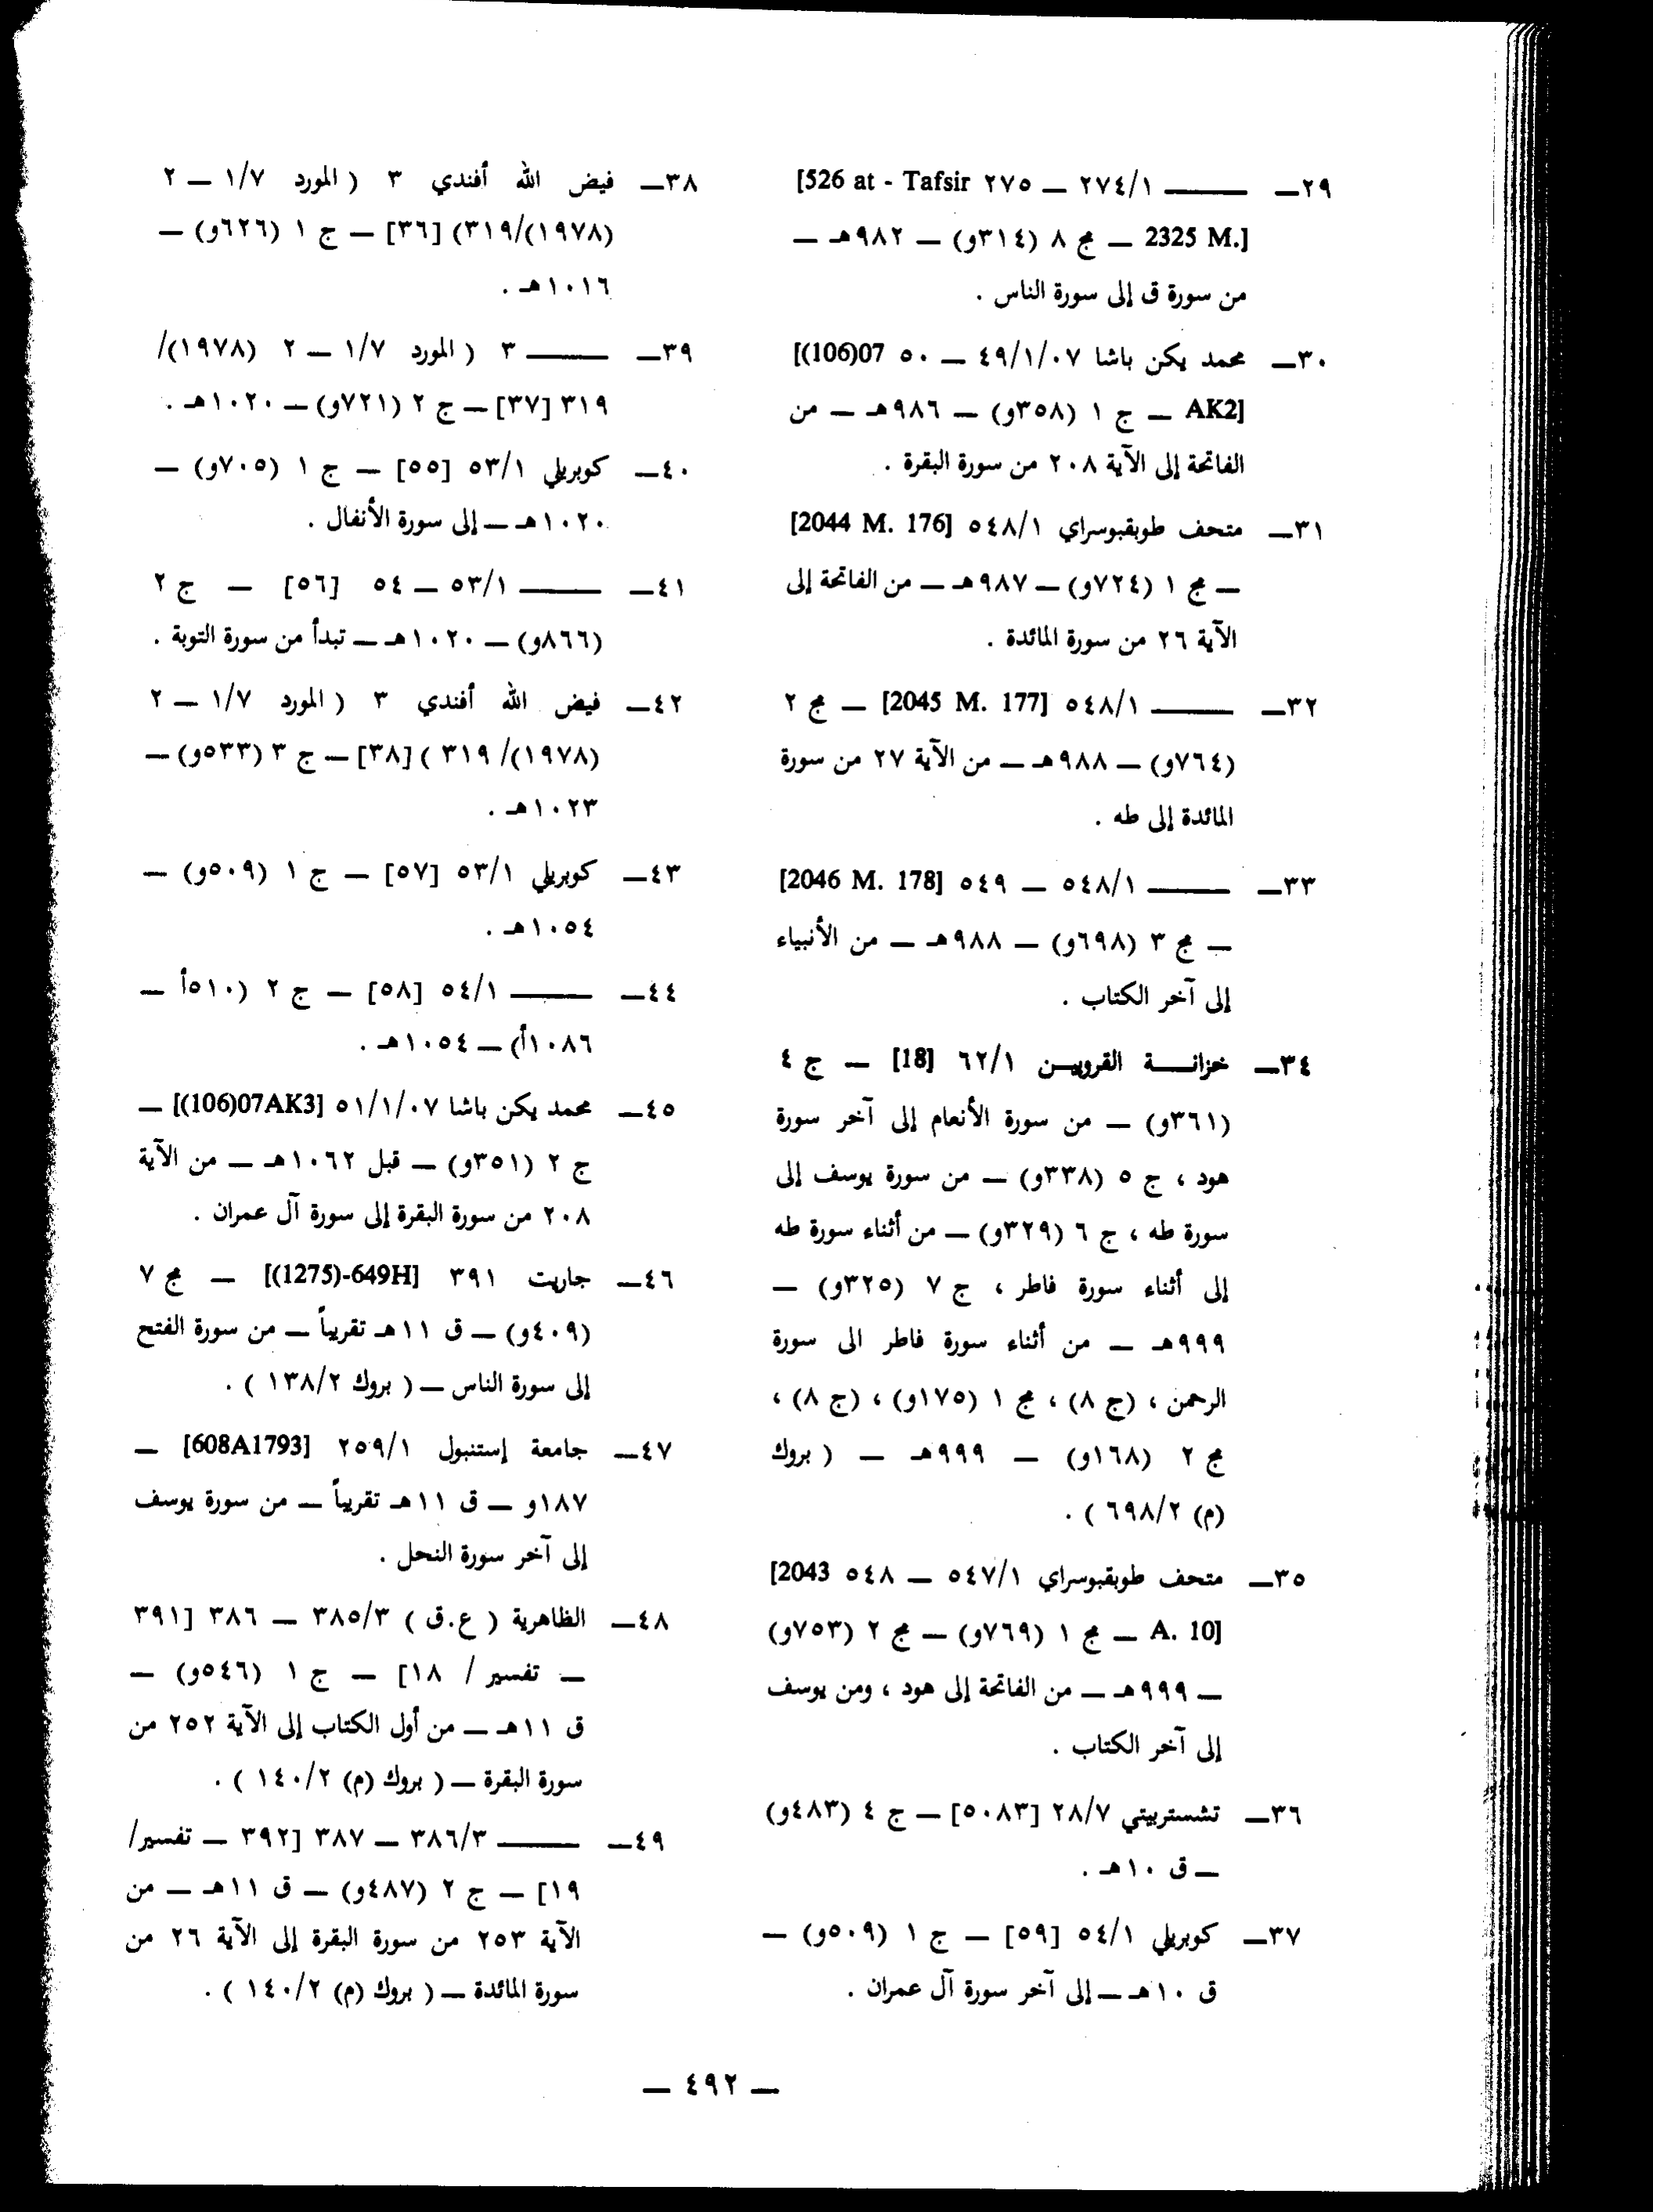 ٢٩ــ ـــــــ ٢٧٤/١ ــ ٢٧٥ [526 at - Tafsir
2325 M.] ــ مج ٨ (٣١٤و) ــ ٩٨٢هـ ــ
من سورة ق إلى سورة الناس .
٣٠ــ محمد يكن باشا ٤٩/١/٠٧ ــ ٥٠ [(106)07
AK2] ــ ج ١ (٣٥٨و) ــ ٩٨٦هـ ــ من
الفاتحة إلى الآية ٢٠٨ من سورة البقرة .
٣١ــ متحف طوبقبوسراي ٥٤٨/١ [2044 M. 176]
ــ مج ١ (٧٢٤و) ــ ٩٨٧هـ ــ من الفاتحة إلى
الآية ٢٦ من سورة المائدة .
٣٢ــ ـــــــ ٥٤٨/١ [2045 M. 177] ــ مج ٢
(٧٦٤و) ــ ٩٨٨هـ ــ من الآية ٢٧ من سورة
المائدة إلى طه .
٣٣ــ ـــــــ ٥٤٨/١ ــ ٥٤٩ [2046 M. 178]
ــ مج ٣ (٦٩٨و) ــ ٩٨٨هـ ــ من الأنبياء
إلى آخر الكتاب .
٣٤ــ خزانـــة القرويـين ٦٢/١ [18] ــ ج ٤
(٣٦١و) ــ من سورة الأنعام إلى آخر سورة
هود ، ج ٥ (٣٣٨و) ــ من سورة يوسف إلى
سورة طه ، ج ٦ (٣٢٩و) ــ من أثناء سورة طه
إلى أثناء سورة فاطر ، ج ٧ (٣٢٥و) ــ
٩٩٩هـ ــ من أثناء سورة فاطر الى سورة
الرحمن ، (ج ٨) ، مج ١ (١٧٥و) ، (ج ٨) ،
مج ٢ (١٦٨و) ــ ٩٩٩هـ ــ ( بروك
(م) ٦٩٨/٢ ) .
٣٥ــ متحف طوبقبوسراي ٥٤٧/١ ــ ٥٤٨ [2043
A. 10] ــ مج ١ (٧٦٩و) ــ مج ٢ (٧٥٣و)
ــ ٩٩٩هـ ــ من الفاتحة إلى هود ، ومن يوسف
إلى آخر الكتاب .
٣٦ــ تشستربيتي ٢٨/٧ [٥٠٨٣] ــ ج ٤ (٤٨٣و)
ــ ق ١٠هـ .
٣٧ــ كوبريلي ٥٤/١ [٥٩] ــ ج ١ (٥٠٩و) ــ
ق ١٠هـ ــ إلى آخر سورة آل عمران .
٣٨ــ فيض الله أفندي ٣ ( المورد ١/٧ ــ ٢
(١٩٧٨)/٣١٩) [٣٦] ــ ج ١ (٦٢٦و) ــ
١٠١٦هـ .
٣٩ــ ـــــــ ٣ ( المورد ١/٧ ــ ٢ (١٩٧٨)/
٣١٩ [٣٧] ــ ج ٢ (٧٢١و) ــ ١٠٢٠هـ .
٤٠ــ كوبريلي ٥٣/١ [٥٥] ــ ج ١ (٧٠٥و) ــ
١٠٢٠هـ ــ إلى سورة الأنفال .
٤١ــ ـــــــ ٥٣/١ ــ ٥٤ [٥٦] ــ ج ٢
(٨٦٦و) ــ ١٠٢٠هـ ــ تبدأ من سورة التوبة .
٤٢ــ فيض الله أفندي ٣ ( المورد ١/٧ ــ ٢
(١٩٧٨)/ ٣١٩ ) [٣٨] ــ ج ٣ (٥٣٣و) ــ
١٠٢٣هـ .
٤٣ــ كوبريلي ٥٣/١ [٥٧] ــ ج ١ (٥٠٩و) ــ
١٠٥٤هـ .
٤٤ــ ـــــــ ٥٤/١ [٥٨] ــ ج ٢ (٥١٠أ ــ
١٠٨٦أ) ــ ١٠٥٤هـ .
٤٥ــ محمد يكن باشا ٥١/١/٠٧ [(106)07AK3] ــ
ج ٢ (٣٥١و) ــ قبل ١٠٦٢هـ ــ من الآية
٢٠٨ من سورة البقرة إلى سورة آل عمران .
٤٦ــ جاريت ٣٩١ [(1275)-649H] ــ مج ٧
(٤٠٩و) ــ ق ١١هـ تقريباً ــ من سورة الفتح
إلى سورة الناس ــ ( بروك ١٣٨/٢ ) .
٤٧ــ جامعة إستنبول ٢٥٩/١ [608A1793] ــ
١٨٧و ــ ق ١١هـ تقريباً ــ من سورة يوسف
إلى آخر سورة النحل .
٤٨ــ الظاهرية ( ع.ق ) ٣٨٥/٣ ــ ٣٨٦ [٣٩١
ــ تفسير / ١٨] ــ ج ١ (٥٤٦و) ــ
ق ١١هـ ــ من أول الكتاب إلى الآية ٢٥٢ من
سورة البقرة ــ ( بروك (م) ١٤٠/٢ ) .
٤٩ــ ـــــــ ٣٨٦/٣ ــ ٣٨٧ [٣٩٢ ــ تفسير/
١٩] ــ ج ٢ (٤٨٧و) ــ ق ١١هـ ــ من
الآية ٢٥٣ من سورة البقرة إلى الآية ٢٦ من
سورة المائدة ــ ( بروك (م) ١٤٠/٢ ) .
ــ ٤٩٢ ــ